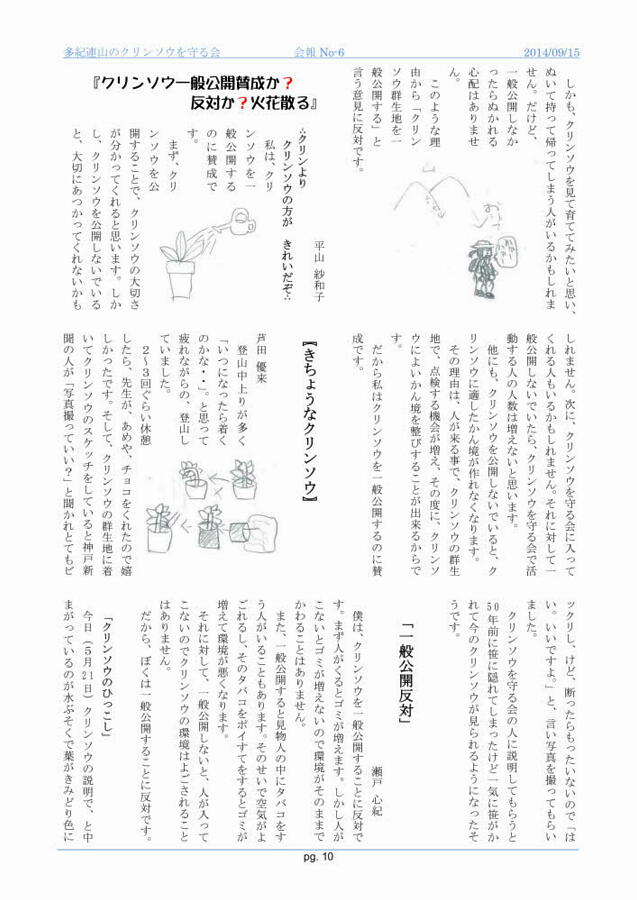 多紀連山のクリンソウを守る会
会報 No-6
2014/09/15
しかも、クリンソウを見て育ててみたいと思い、
ぬいて持って帰ってしまう人がいるかもしれま
せん。だけど、
一般公開しなか
ったらぬかれる
心配はありませ
ん。
このような理
由から「クリン
ソウ群生地を一
般公開する」と
言う意見に反対です。
『クリンソウ一般公開賛成か?
反対か?火花散る』
平山 紗和子
∴クリンより
クリンソウの方が きれいだぞ∴
私は、クリ
ンソウを一
般公開する
のに賛成で
す。
まず、クリ
ンソウを公
開することで、クリンソウの大切さ
が分かってくれると思います。しか
し、クリンソウを公開しないでいる
と、大切にあつかってくれないかも
しれません。次に、クリンソウを守る会に入って
くれる人もいるかもしれません。それに対して一
般公開しないでいたら、クリンソウを守る会で活
動する人の人数は増えないと思います。
他にも、クリンソウを公開しないでいると、ク
リンソウに適したかん境が作れなくなります。
その理由は、人が来る事で、クリンソウの群生
地で、点検する機会が増え、その度に、クリンソ
ウによいかん境を整びすることが出来るからで
す。
だから私はクリンソウを一般公開するのに賛
成です。
【きちょうなクリンソウ】
芦田 優来
登山中上りが多く
「いつになったら着く
のかな・・」。と思って
疲れながらの、登山し
ていました。
2〜3回ぐらい休憩
したら、先生が、あめや、チョコをくれたので嬉
しかったです。そして、クリンソウの群生地に着
いてクリンソウのスケッチをしていると神戸新
聞の人が「写真撮っていい?」と聞かれとてもビ
ックリし、けど、断ったらもったいないので「は
い。いいですよ。」と、言い写真を撮ってもらい
ました。
クリンソウを守る会の人に説明してもらうと
50年前に笹に隠れてしまったけど一気に笹がか
れて今のクリンソウが見られるようになったそ
うです。
「一般公開反対」
瀬戸 心紀
僕は、クリンソウを一般公開することに反対で
す。まず人がくるとゴミが増えます。しかし人が
こないとゴミが増えないので環境がそのままで
かわることはありません。
また、一般公開すると見物人の中にタバコをす
う人がいることもあります。そのせいで空気がよ
ごれるし、そのタバコをポイすてをするとゴミが
増えて環境が悪くなります。
それに対して、一般公開しないと、人が入って
こないのでクリンソウの環境はよごされること
はありません。
だから、ぼくは一般公開することに反対です。
「クリンソウのひっこし」
今日(5月21日)クリンソウの説明で、と中
まがっているのが水ぶそくで葉がきみどり色に
pg. 10